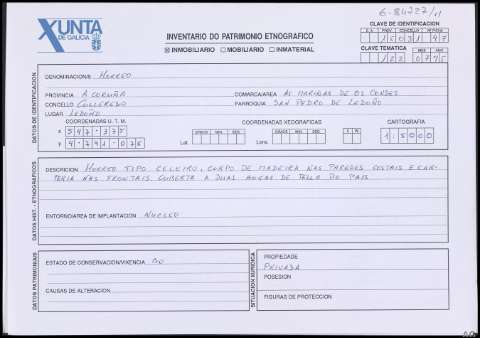 6-84227/11
XUNTA
DE GALICIA
INVENTARIO DO PATRIMONIO ETNOGRAFICO
INMOBILIARIO MOBILIARIO INMATERIAL
CLAVE DE IDENTIFICACION
C.A. PROV. CONCELLO Nº FICHA
1 15 031 47
CLAVE TEMATICA
122 0775
DATOS DE IDENTIFICACION
DENOMINACIONS HORREO
PROVINCIA A CORUÑA
COMARCA/AREA AS MARIÑAS DE OS CONDES
CONCELLO CULLEREDO
PARROQUIA SAN PEDRO DE LEDOÑO
LUGAR LEDOÑO
COORDENADAS U.T.M.
COORDENADAS XEOGRAFICAS
CARTOGRAFIA
X 547.375
Lat.
Lonx.
1:5000
Y 4.791.075
DATOS HIST.- ETNOGRAFICOS
DESCRICION HORREO TIPO CELEIRO, CORPO DE MADEIRA NAS PAREDES COSTAIS E CAN-
TERIA NAS FRONTAIS. CUBERTA A DUAS AUGAS DE TELLA DO PAIS
ENTORNO/AREA DE IMPLANTACION NUCLEO
DATOS PATRIMONIAIS
ESTADO DE CONSERVACION/VIXENCIA
CAUSAS DE ALTERACION
SITUACION XURIDICA
PROPIEDADE
PRIVADA
POSESION
FIGURAS DE PROTECCION